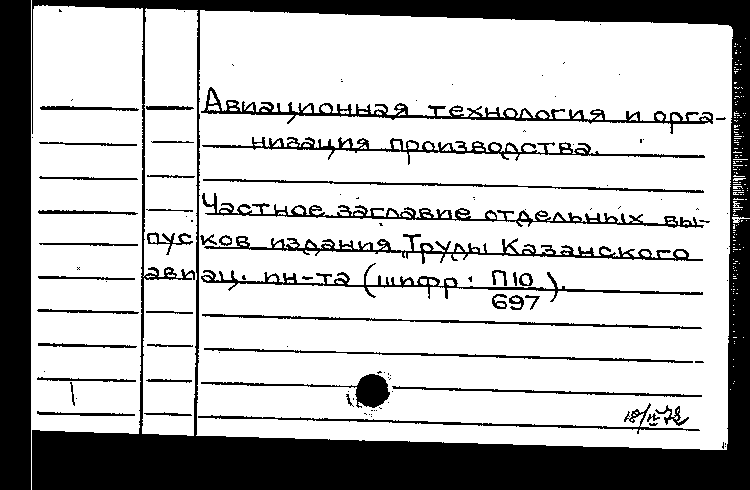 Авиационная технология и орга-
низация производства.
Частное заглавие отдельных вы-
пусков издания „Труды Казанского
авиац. ин-та (шифр: П10/697).
18/IV-72